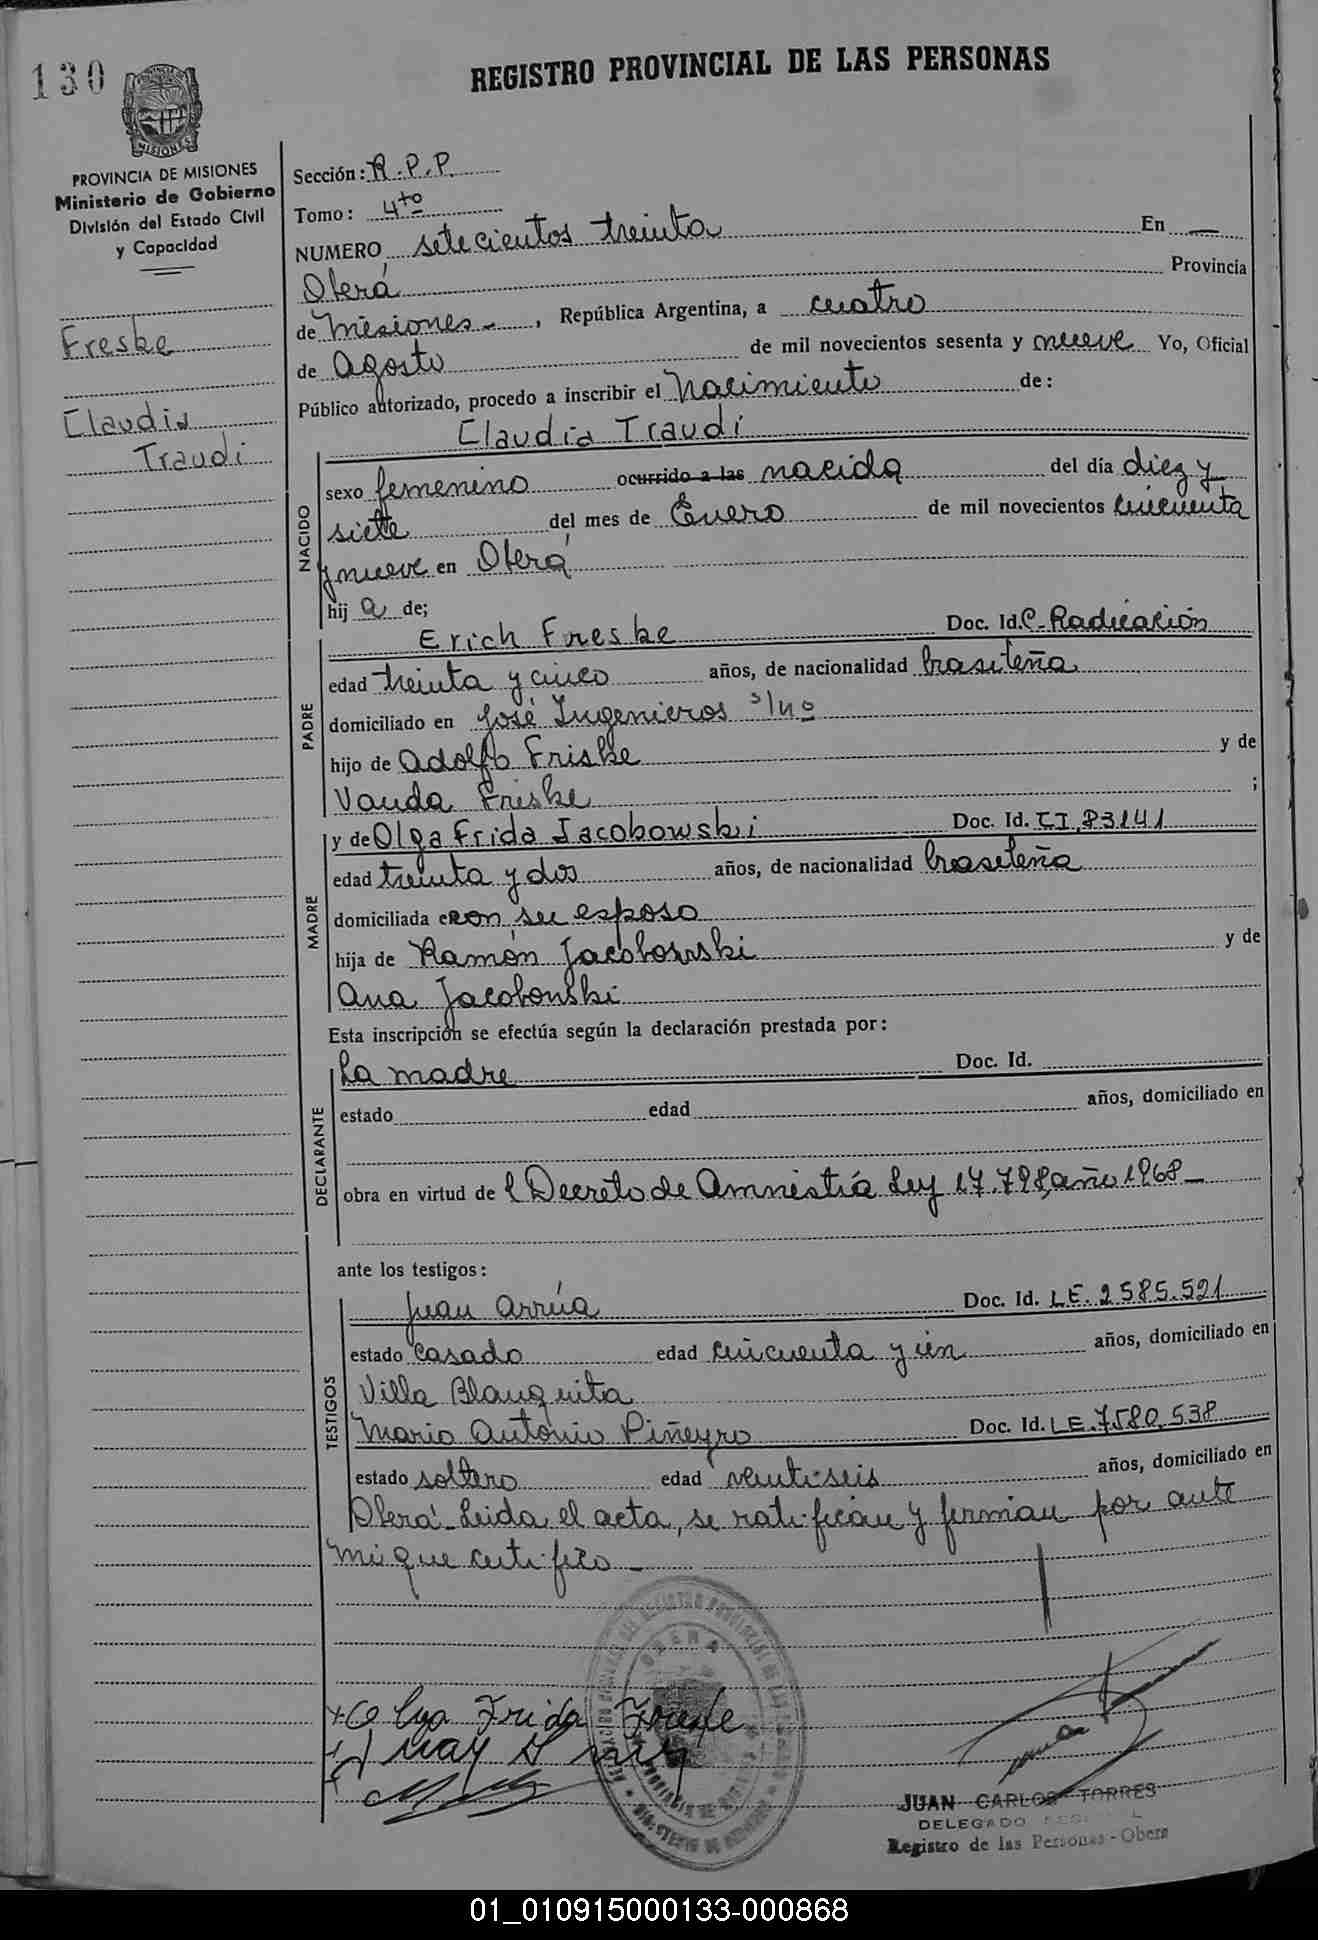 130
REGISTRO PROVINCIAL DE LAS PERSONAS
MISIONES
PROVINCIA DE MISIONES
Ministerio de Gobierno
División del Estado Civil
y Capacidad
Freske
Claudia
Traudi
Sección: R.P.P.
Tomo: 4to
NUMERO setecientos treinta En —
Oberá Provincia
de Misiones - , República Argentina, a cuatro
de Agosto de mil novecientos sesenta y nueve Yo, Oficial
Público autorizado, procedo a inscribir el Nacimiento de:
Claudia Traudi
NACIDO
sexo femenino ocurrido a las nacida del día diez y
siete del mes de Enero de mil novecientos cincuenta
y nueve en Oberá
hij a de;
PADRE
Erich Freske Doc. Id. C. Radicación
edad treinta y cinco años, de nacionalidad brasileña
domiciliado en José Ingenieros s/no
hijo de Adolfo Friske y de
Vanda Friske ;
MADRE
y de Olga Frida Jacobowski Doc. Id. C.I. 83141
edad treinta y dos años, de nacionalidad brasileña
domiciliada con su esposo
hija de Ramón Jacobowski y de
Ana Jacobonski
Esta inscripción se efectúa según la declaración prestada por:
DECLARANTE
La madre Doc. Id.
estado edad años, domiciliado en
obra en virtud de l Decreto de Amnistía Ley 17.798, año 1968 —
ante los testigos:
TESTIGOS
Juan Arrúa Doc. Id. L.E. 2585.521
estado casado edad cincuenta y un años, domiciliado en
Villa Blanquita
Mario Antonio Piñeyro Doc. Id. L.E. 7580.538
estado soltero edad veintiseis años, domiciliado en
Oberá - Leida el acta, se ratifican y firman por ante
mi que certifico -
Olga Frida Freske
JUAN CARLOS TORRES
DELEGADO
Registro de las Personas - Oberá
01_010915000133-000868